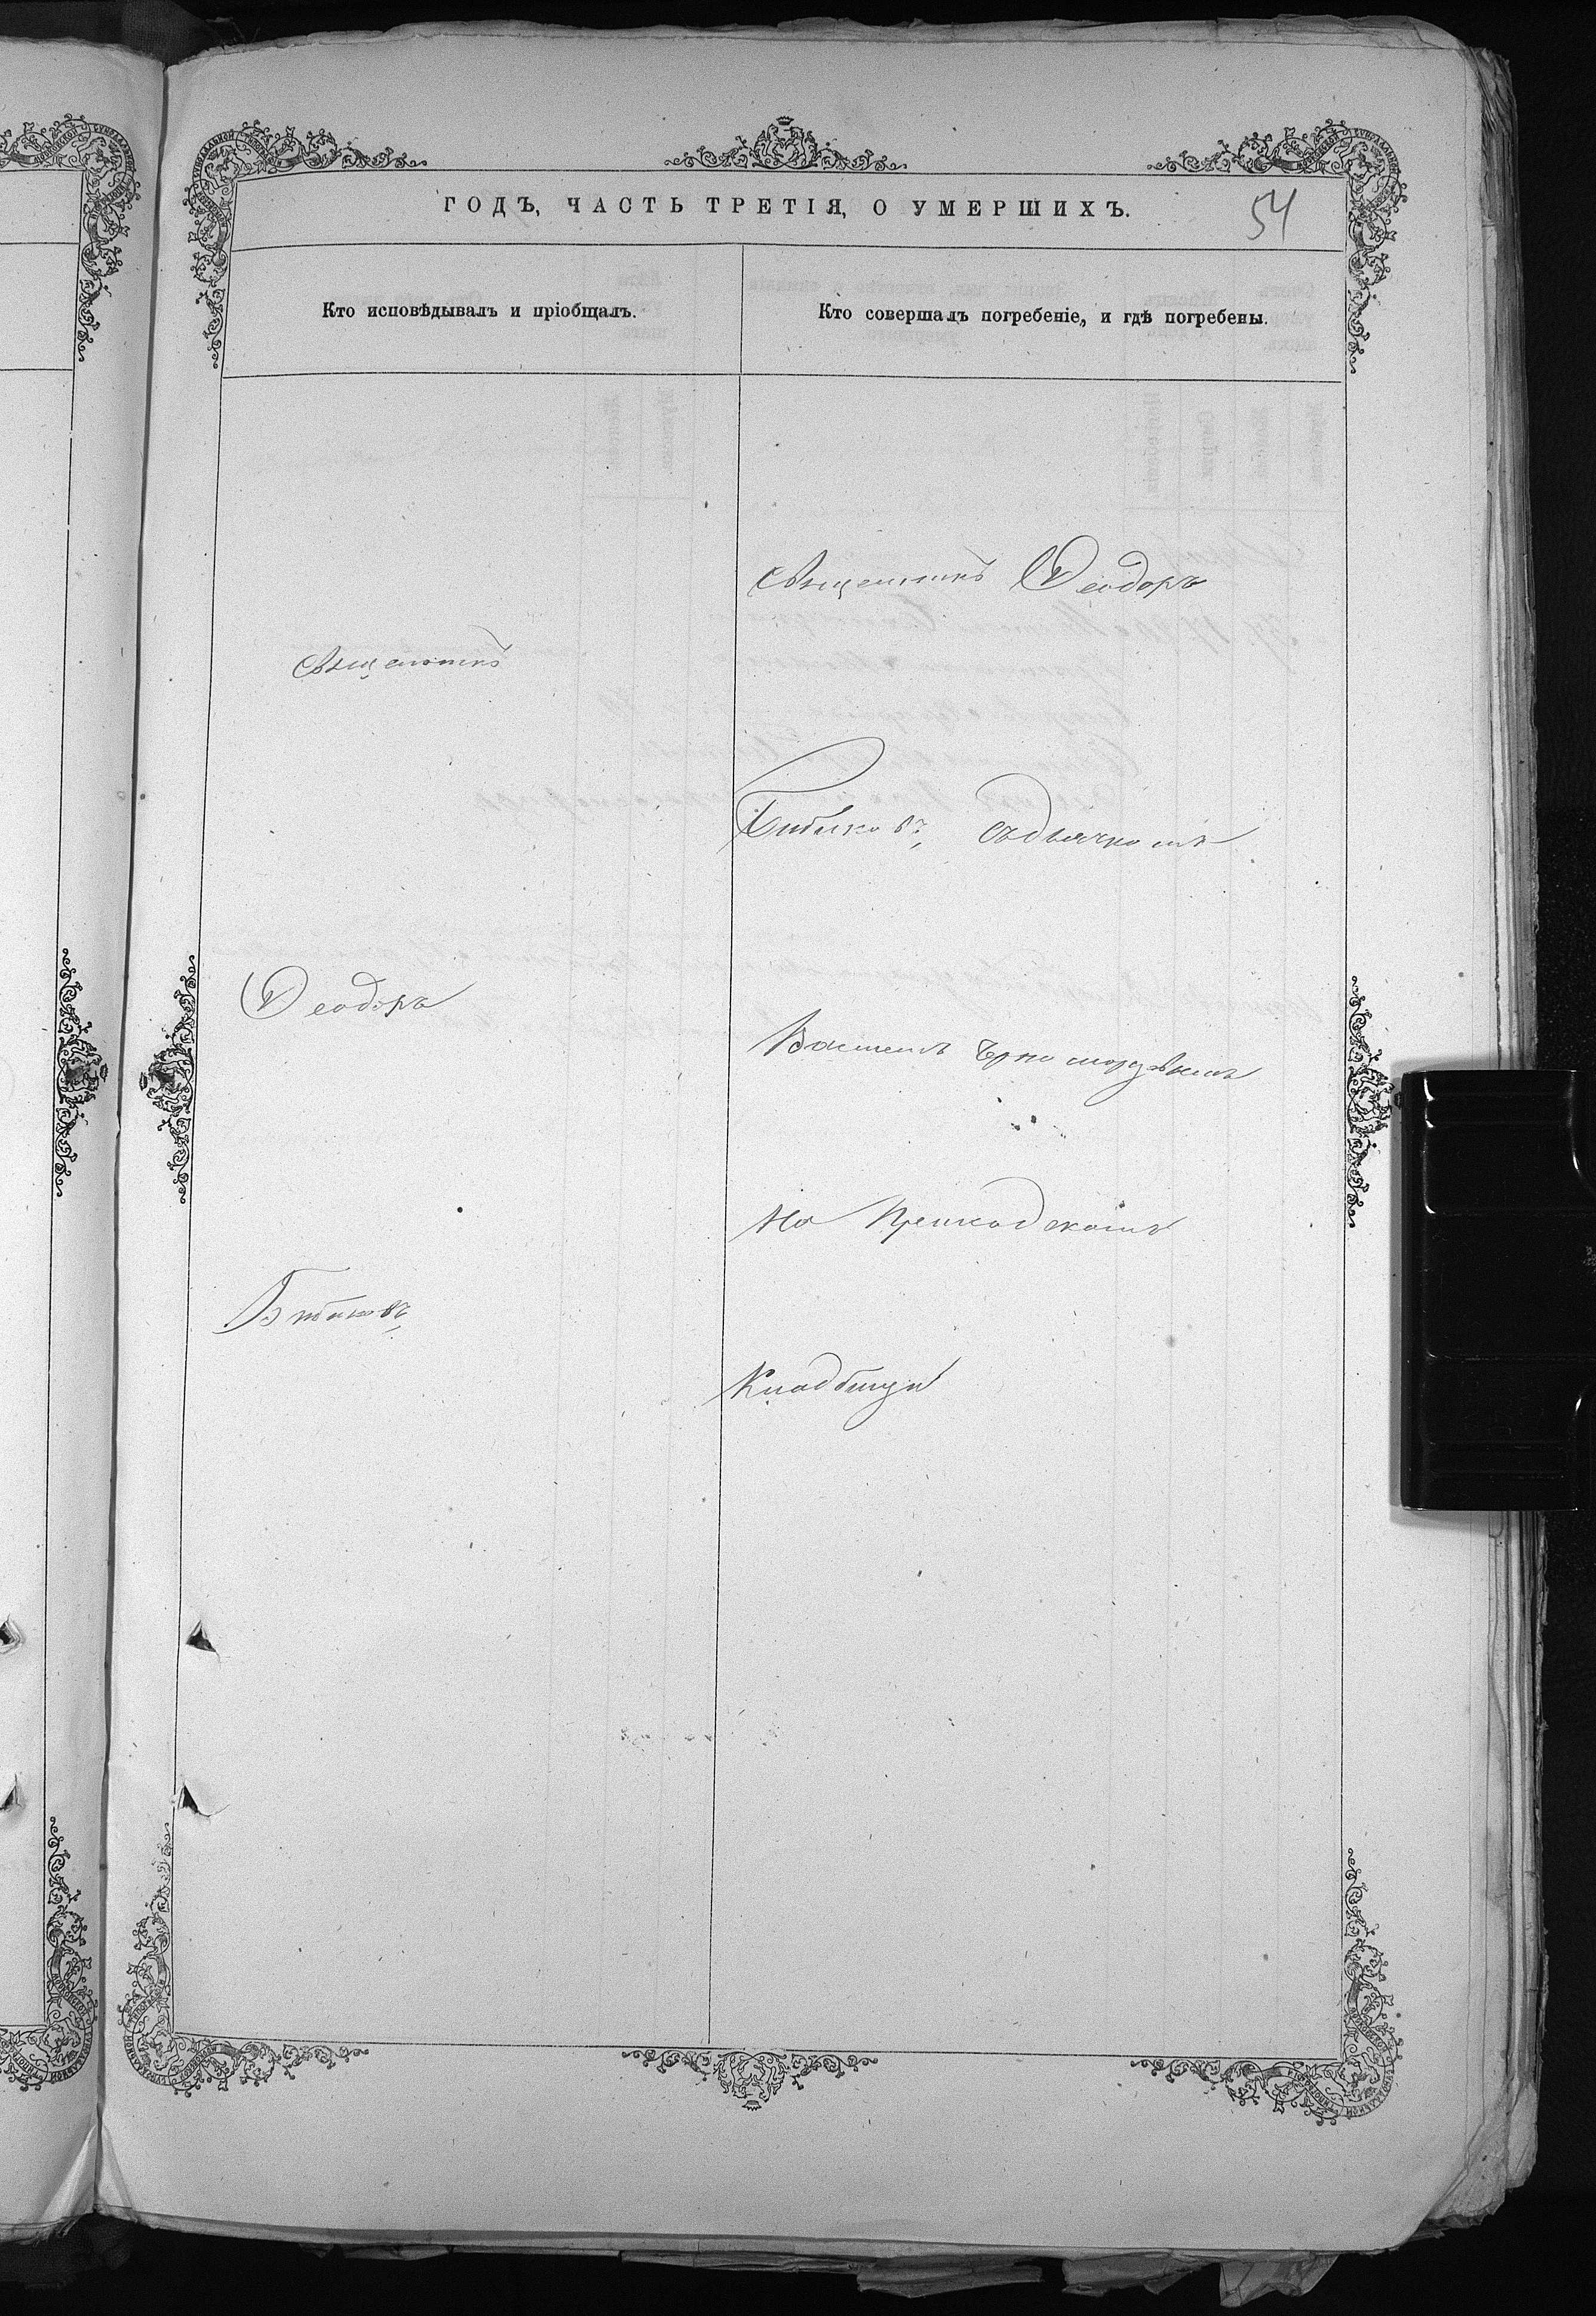 ГОДЪ, ЧАСТЬ ТРЕТІЯ, О УМЕРШИХЪ.
54
Кто исповѣдывалъ и пріобщалъ.
Кто совершалъ погребеніе, и гдѣ погребены.
Священникъ
Ѳеодоръ
Бибиковъ
Священникъ Ѳеодоръ
Бибиковъ, съ дьячкомъ
На Приходскомъ
Кладбищѣ